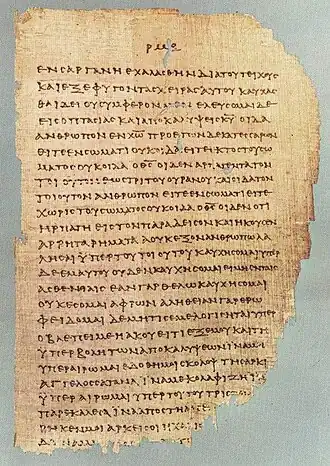 ΕΝΣΑΡΓΑΝΗΕΧΑΛΑΣΘΗΝΔΙΑΤΟΥΤΕΙΧΟΥΣ
ΚΑΙΕΞΕΦΥΓΟΝΤΑΣΧΕΙΡΑΣΑΥΤΟΥΚΑΥΧΑΣ
ΘΑΙΔΕΙΟΥΣΥΜΦΕΡΟΝΜΕΝΕΛΕΥΣΟΜΑΙΔΕ
ΕΙΣΟΠΤΑΣΙΑΣΚΑΙΑΠΟΚΑΛΥΨΕΙΣΚ̅Υ̅ ΟΙΔΑ
ΑΝΘΡΩΠΟΝΕΝΧ̅Ρ̅Ω̅ΠΡΟΕΤΩΝΔΕΚΑΤΕΣΣΑΡΩΝ
ΕΙΤΕΕΝΣΩΜΑΤΙΟΥΚΟΙΔΑΕΙΤΕΕΚΤΟΣΤΟΥΣΩ
ΜΑΤΟΣΟΥΚΟΙΔΑΟΘ̅Σ̅ΟΙΔΕΝΑΡΠΑΓΕΝΤΑΤΟΝ
ΤΟΙΟΥΤΟΝΕΩΣΤΡΙΤΟΥΟΥΡΑΝΟΥΚΑΙΟΙΔΑΤΟΝ
ΤΟΙΟΥΤΟΝΑΝΘΡΩΠΟΝΕΙΤΕΕΝΣΩΜΑΤΙΕΙΤΕ
ΧΩΡΙΣΤΟΥΣΩΜΑΤΟΣΟΥΚΟΙΔΑΟΘ̅Σ̅ΟΙΔΕΝΟΤΙ
ΗΡΠΑΓΗΕΙΣΤΟΝΠΑΡΑΔΕΙΣΟΝΚΑΙΗΚΟΥΣΕΝ
ΑΡΡΗΤΑΡΗΜΑΤΑΑΟΥΚΕΞΟΝΑΝΘΡΩΠΩΛΑ
ΛΗΣΑΙΫΠΕΡΤΟΥΤΟΙΟΥΤΟΥΚΑΥΧΗΣΟΜΑΙΫΠΕΡ
ΔΕΕΜΑΥΤΟΥΟΥΔΕΝΚΑΥΧΗΣΟΜΑΙΕΙΜΗΕΝΤΑΙΣ
ΑΣΘΕΝΕΙΑΙΣΕΑΝΓΑΡΘΕΛΩΚΑΥΧΗΣΟΜΑΙ
ΟΥΚΕΣΟΜΑΙΑΦΡΩΝΑΛΗΘΕΙΑΝΓΑΡΕΡΩ
ΦΕΙΔΟΜΑΙΔΕΜΗΤΙΣΕΜΕΛΟΓΙΣΗΤΑΙΫΠΕΡ
ΟΒΛΕΠΕΙΜΕΗΑΚΟΥΕΙΤΙΕΞΕΜΟΥΚΑΙΤΗ
ΫΠΕΡΒΟΛΗΤΩΝΑΠΟΚΑΛΥΨΕΩΝΙΝΑΜΗ
ΥΠΕΡΑΙΡΩΜΑΙΕΔΟΘΗΜΟΙΣΚΟΛΟΨΤΗΣΑΡΚΙ
ΑΓΓΕΛΟΣΣΑΤΑΝΑΪΝΑΜΕΚΟΛΑΦΙΖΗ
ΫΠΕΡΑΙΡΩΜΑΙΫΠΕΡΤΟΥΤΟΥΤΡΙΣ
ΠΑΡΕΚΑΛΕΣΑΙΝΑΑΠΟΣΤΗ
ΡΗΚΕΝΜΟΙΑΡΚΕΙΣΟΙΗΧΑΡΙΣ